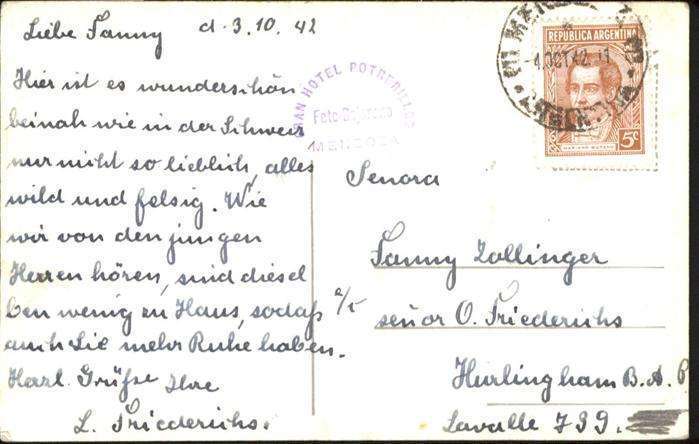 Liebe Fanny d. 3.10.42
Hier ist es wunderschön
beinah wie in der Schweiz
nur nicht so lieblich, alles
wild und felsig. Wie
wir von den jungen
Herren hören, sind diesel
ben wenig zu Haus, sodaß
auch Sie mehr Ruhe haben.
Herzl. Grüße Ihre
L. Friederichs.
GRAN HOTEL POTRERILLOS
MENDOZA
REPUBLICA ARGENTINA
4 OCT 42
ARGENTINA
MARIANO MORENO
5c
Senora
Fanny Zollinger
c/o señor O. Friederichs
Hurlingham B.A.P
Lavalle 739.